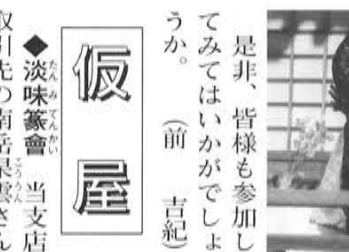 是非、皆様も参加し
てみてはいかがでしょ
うか。　（前　吉紀）
仮屋
◆淡味篆會　当支店
取引先の南岳杲雲さん